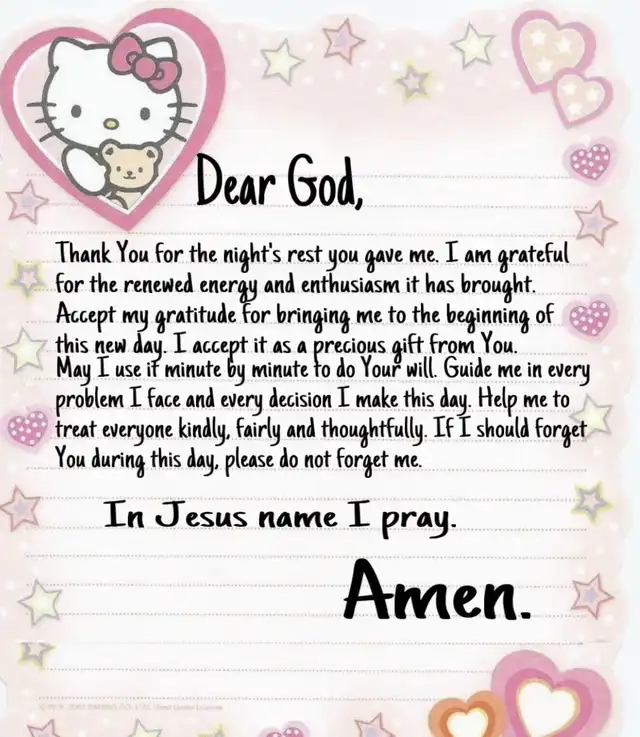 Dear God,
Thank You for the night's rest you gave me. I am grateful
for the renewed energy and enthusiasm it has brought.
Accept my gratitude for bringing me to the beginning of
this new day. I accept it as a precious gift from You.
May I use it minute by minute to do Your will. Guide me in every
problem I face and every decision I make this day. Help me to
treat everyone kindly, fairly and thoughtfully. If I should forget
You during this day, please do not forget me.
In Jesus name I pray.
Amen.